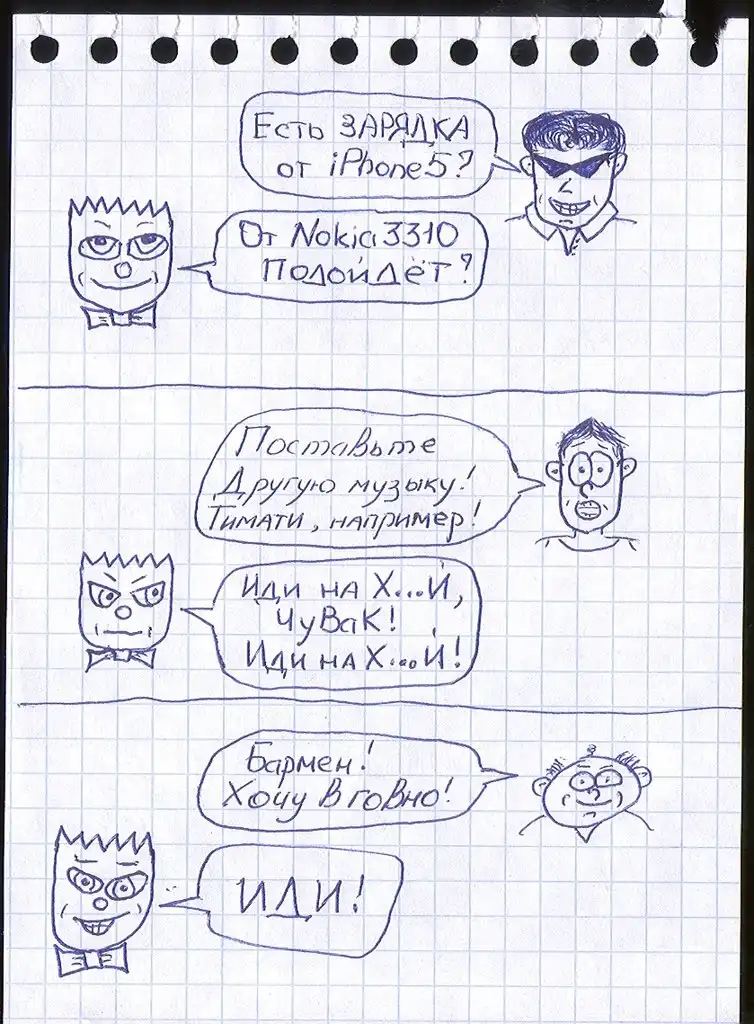 Есть ЗАРЯДКА
от iPhone5?
От Nokia 3310
Подойдёт?
Поставьте
Другую музыку!
Тимати, например!
Иди на Х...Й,
ЧуВаК!
Иди на Х...Й!
Бармен!
Хочу в говно!
ИДИ!